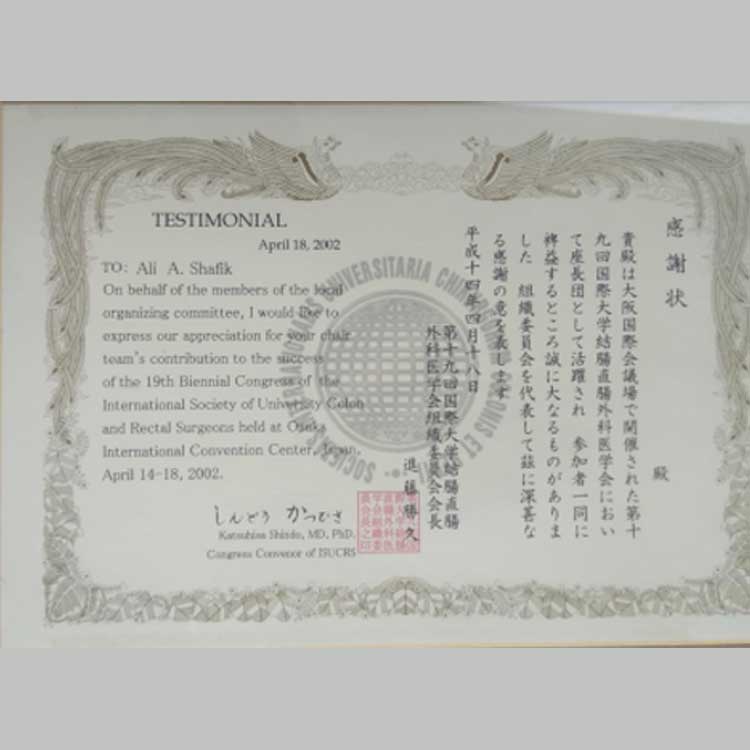 TESTIMONIAL
April 18, 2002
TO: Ali A. Shafik
On behalf of the members of the local
organizing committee, I would like to
express our appreciation for your chair
team's contribution to the success
of the 19th Biennial Congress of the
International Society of University Colon
and Rectal Surgeons held at Osaka
International Convention Center, Japan.
April 14-18, 2002.
しんどう かつひさ
Katsuhisa Shindo, MD, PhD.
Congress Convenor of ISUCRS
感謝状
殿
貴殿は大阪国際会議場で開催された第十
九回国際大学結腸直腸外科医学会におい
て座長団として活躍され 参加者一同に
裨益するところ誠に大なるものがありま
した 組織委員会を代表して茲に深甚な
る感謝の意を表します
平成十四年四月十八日
第十九回国際大学結腸直腸
外科医学会組織委員会会長
進藤勝久